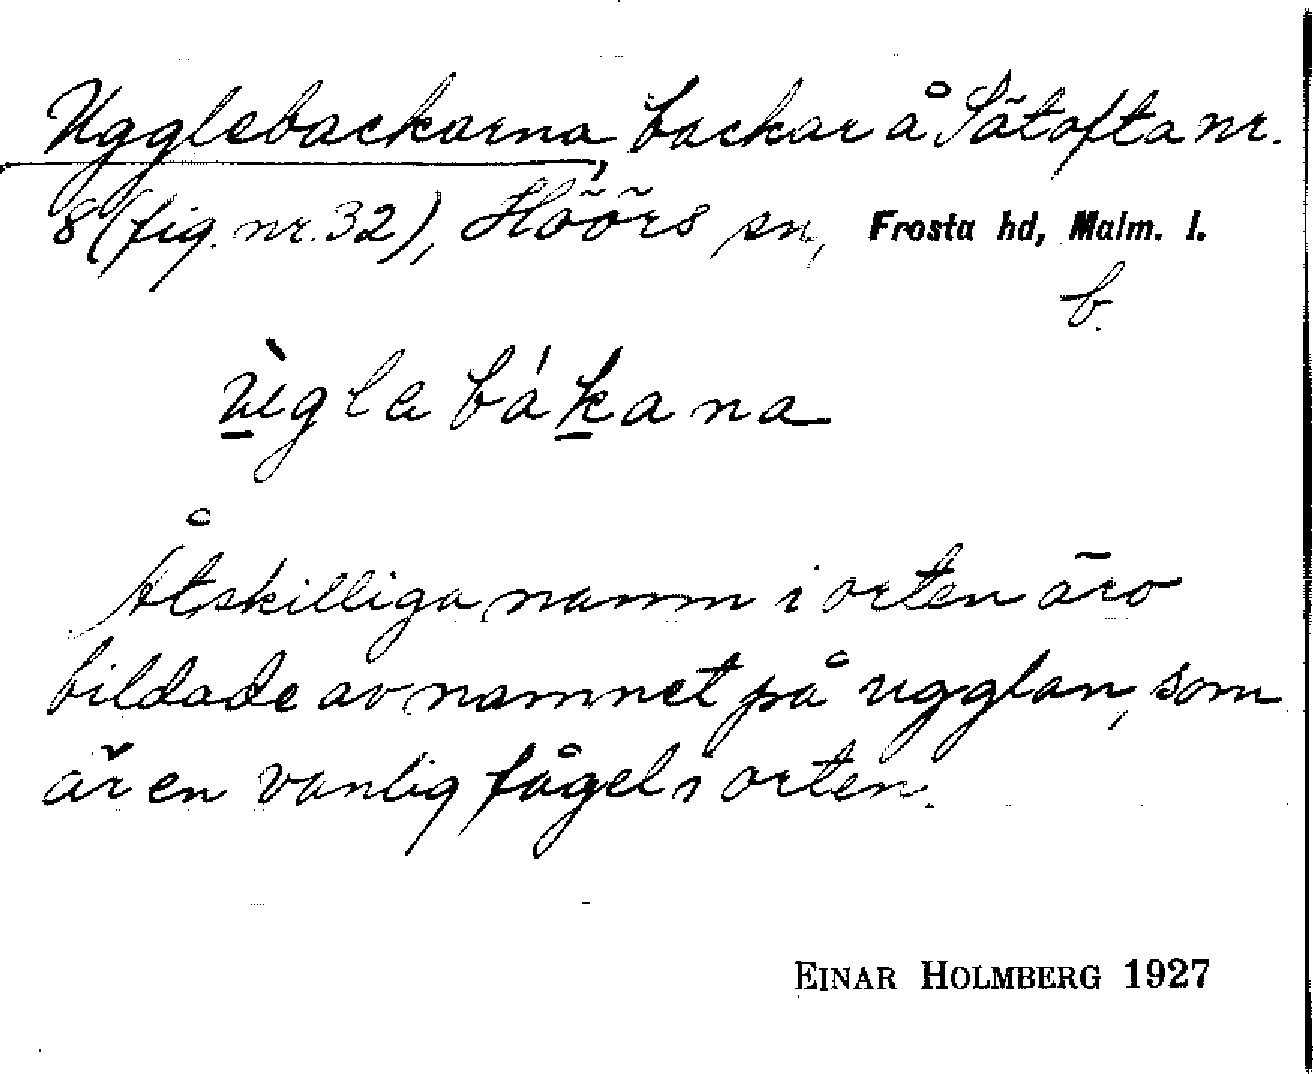 Ugglebackarna, backar å Sätofta nr.
8 (fig. nr. 32), Höörs sn, Frosta hd, Malm. l.
b.
ùgla bákana
Åtskilliga namn i orten äro
bildade av namnet på ugglan, som
är en vanlig fågel i orten.
EINAR HOLMBERG 1927